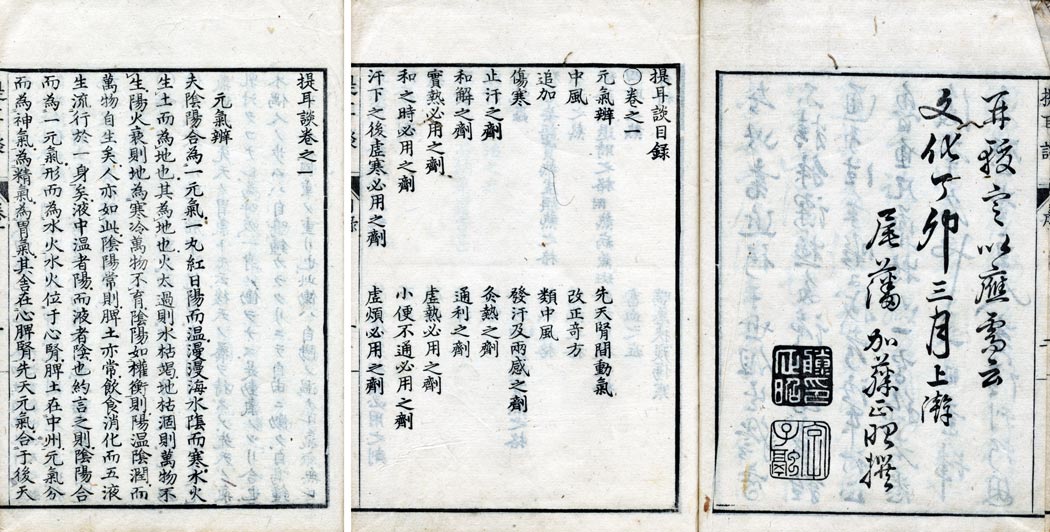 以應需云
文化丁卯三月上澣
尾藩 加藤正昭撰
字子融
提耳談目錄
卷之一
元氣辨 先天腎間動氣
中風 改正奇方
追加 類中風
傷寒 發汗及兩感之劑
止汗之劑 灸熱之劑
和解之劑 通利之劑
實熱必用之劑 虛熱必用之劑
和之時必用之劑 小便不通必用之劑
汗下之後虛寒必用之劑 虛煩必用之劑
提耳談卷之一
元氣辨
夫陰陽合為一元氣一丸紅日陽而温漫漫海水陰而寒水火
生土而為地也其為地也火太過則水枯竭地枯涸則萬物不
生陽火衰則地為寒冷萬物不育陰陽如權衡則陽温陰潤而
萬物自生矣人亦如此陰陽常則脾土亦常飲食消化而五液
生流行於一身矣液中温者陽而液者陰也約言之則陰陽合
而為一元氣形而為水火水火位于心腎脾土在中州元氣分
而為神氣為精氣為胃氣其舍在心脾腎先天元氣合于後天